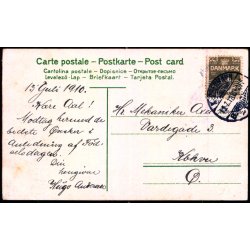 Carte postale - Postkarte - Post card
Cartolina postale - Dopisnice - Открытое письмо
Levelező-Lap - Briefkaart - Tarjeta Postal.
DANMARK
13 Juli 1910.
Kære Aal!
Modtag herved de
bedste Ønsker i
Anledning af Fød-
selsdagen.
Din
hengivne
Hugo
Hr. Mekaniker
Vardegade 3.
Kbhvn
Ø.